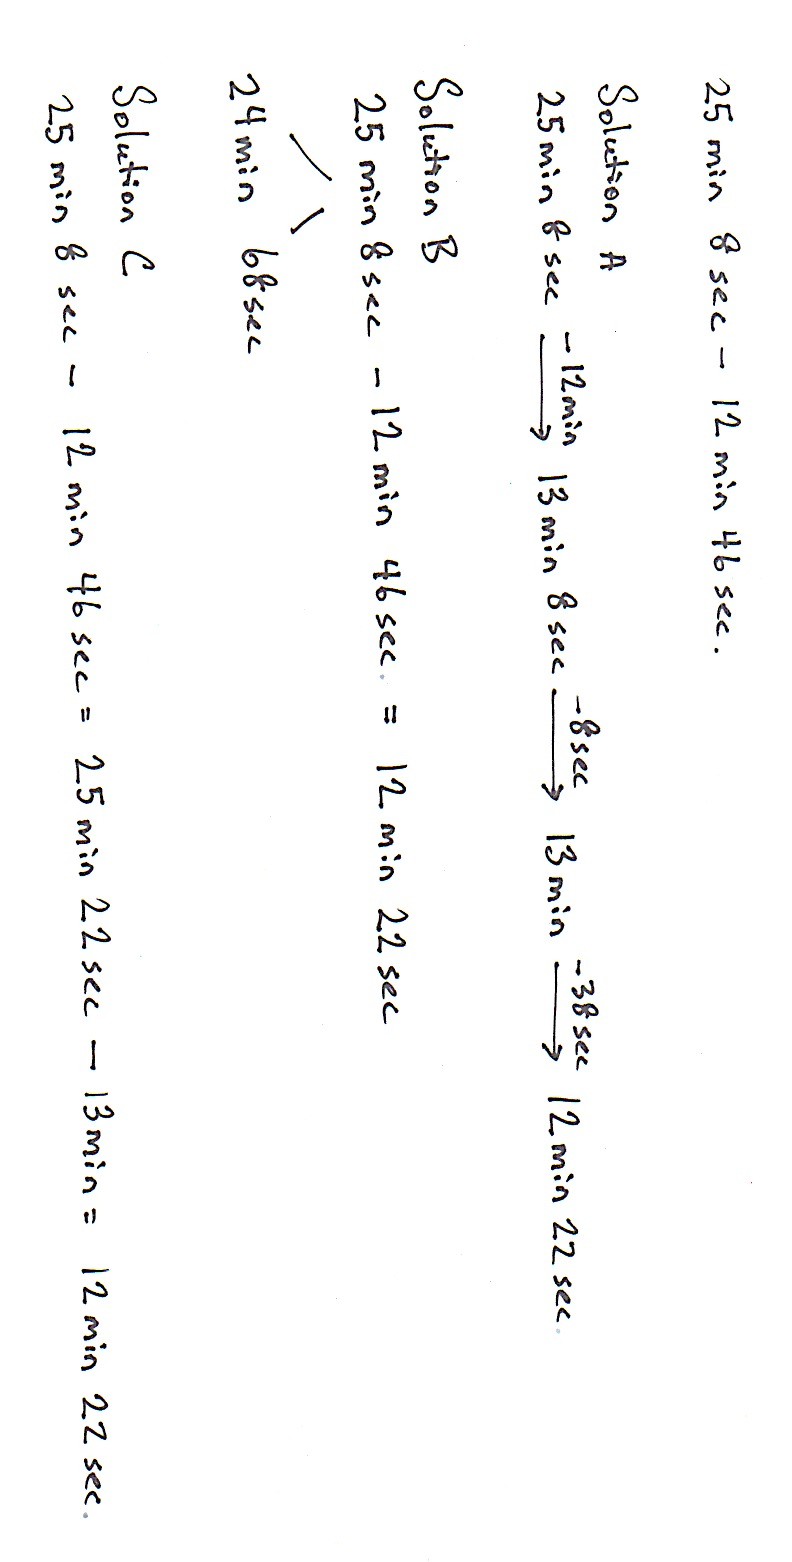 25 min 8 sec - 12 min 46 sec.
Solution A
25 min 8 sec -12min → 13 min 8 sec -8sec → 13 min -38sec → 12 min 22 sec.
Solution B
25 min 8 sec - 12 min 46 sec. = 12 min 22 sec
24 min 68 sec
Solution C
25 min 8 sec - 12 min 46 sec = 25 min 22 sec - 13 min = 12 min 22 sec.